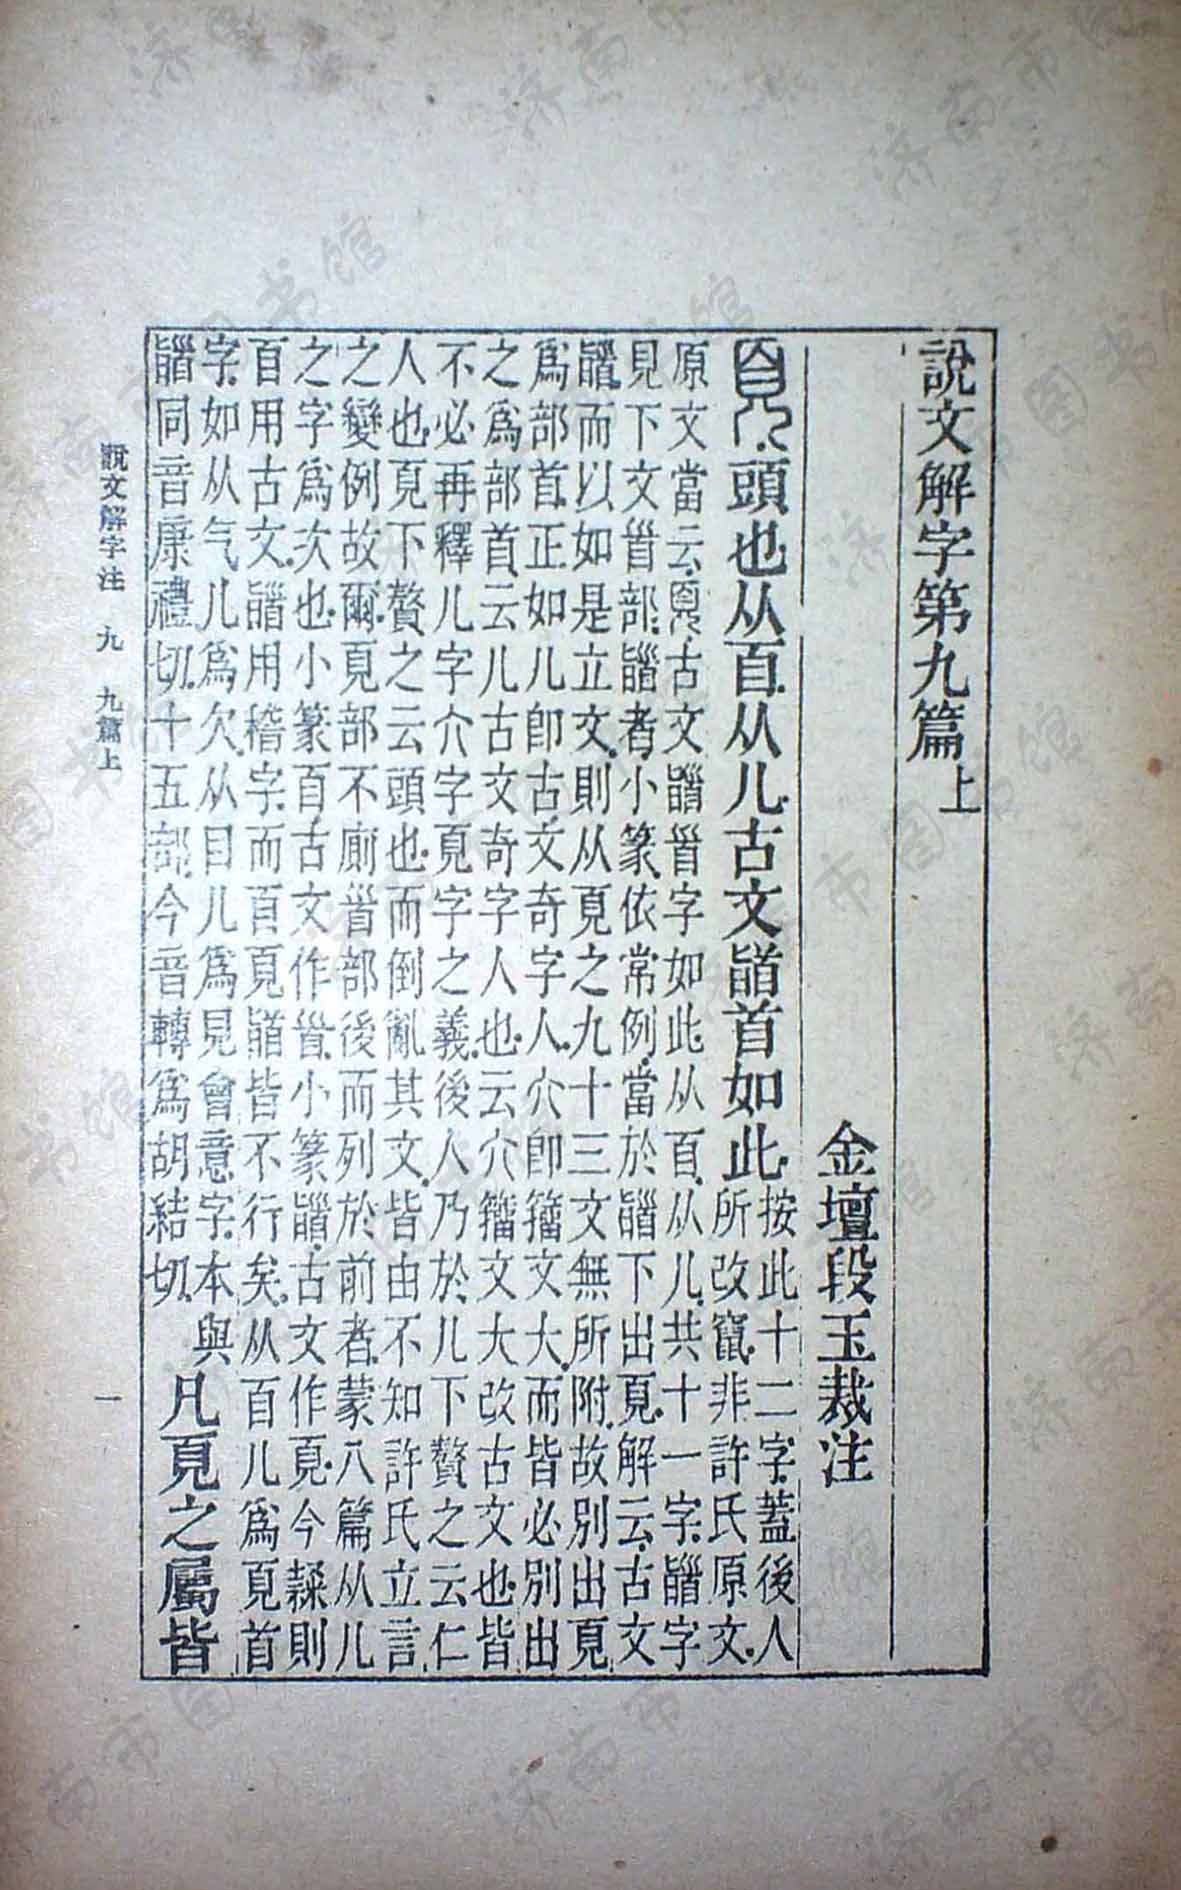 說文解字第九篇上
金壇段玉裁注
頁頭也从𦣻从儿古文䭫首如此
按此十二字蓋後人
所改竄非許氏原文
原文當云頁古文䭫𩠐字如此从𦣻从儿共十一字䭫字
見下文𩠐部䭫者小篆依常例當於䭫下出頁解云古文
䭫而以如是立文則从頁之九十三文無所附故別出頁
爲部首正如儿卽古文奇字人亣卽籒文大而皆必別出
之爲部首云儿古文奇字人也云亣籒文大改古文也皆
不必再釋儿字亣字頁字之義後人乃於儿下贅之云仁
人也頁下贅之云頭也而倒亂其文皆由不知許氏立言
之變例故爾頁部不廁𩠐部後而列於前者蒙八篇从儿
之字爲次也小篆𦣻古文作𩠐小篆䭫古文作頁今隸則
𦣻用古文䭫用稽字而𦣻頁䭫皆不行矣从𦣻儿爲頁首
字如从气儿爲欠从目儿爲見會意字本與
䭫同音康禮切十五部今音轉爲胡結切
凡頁之屬皆
說文解字注 九 九篇上 一
济南市图书馆